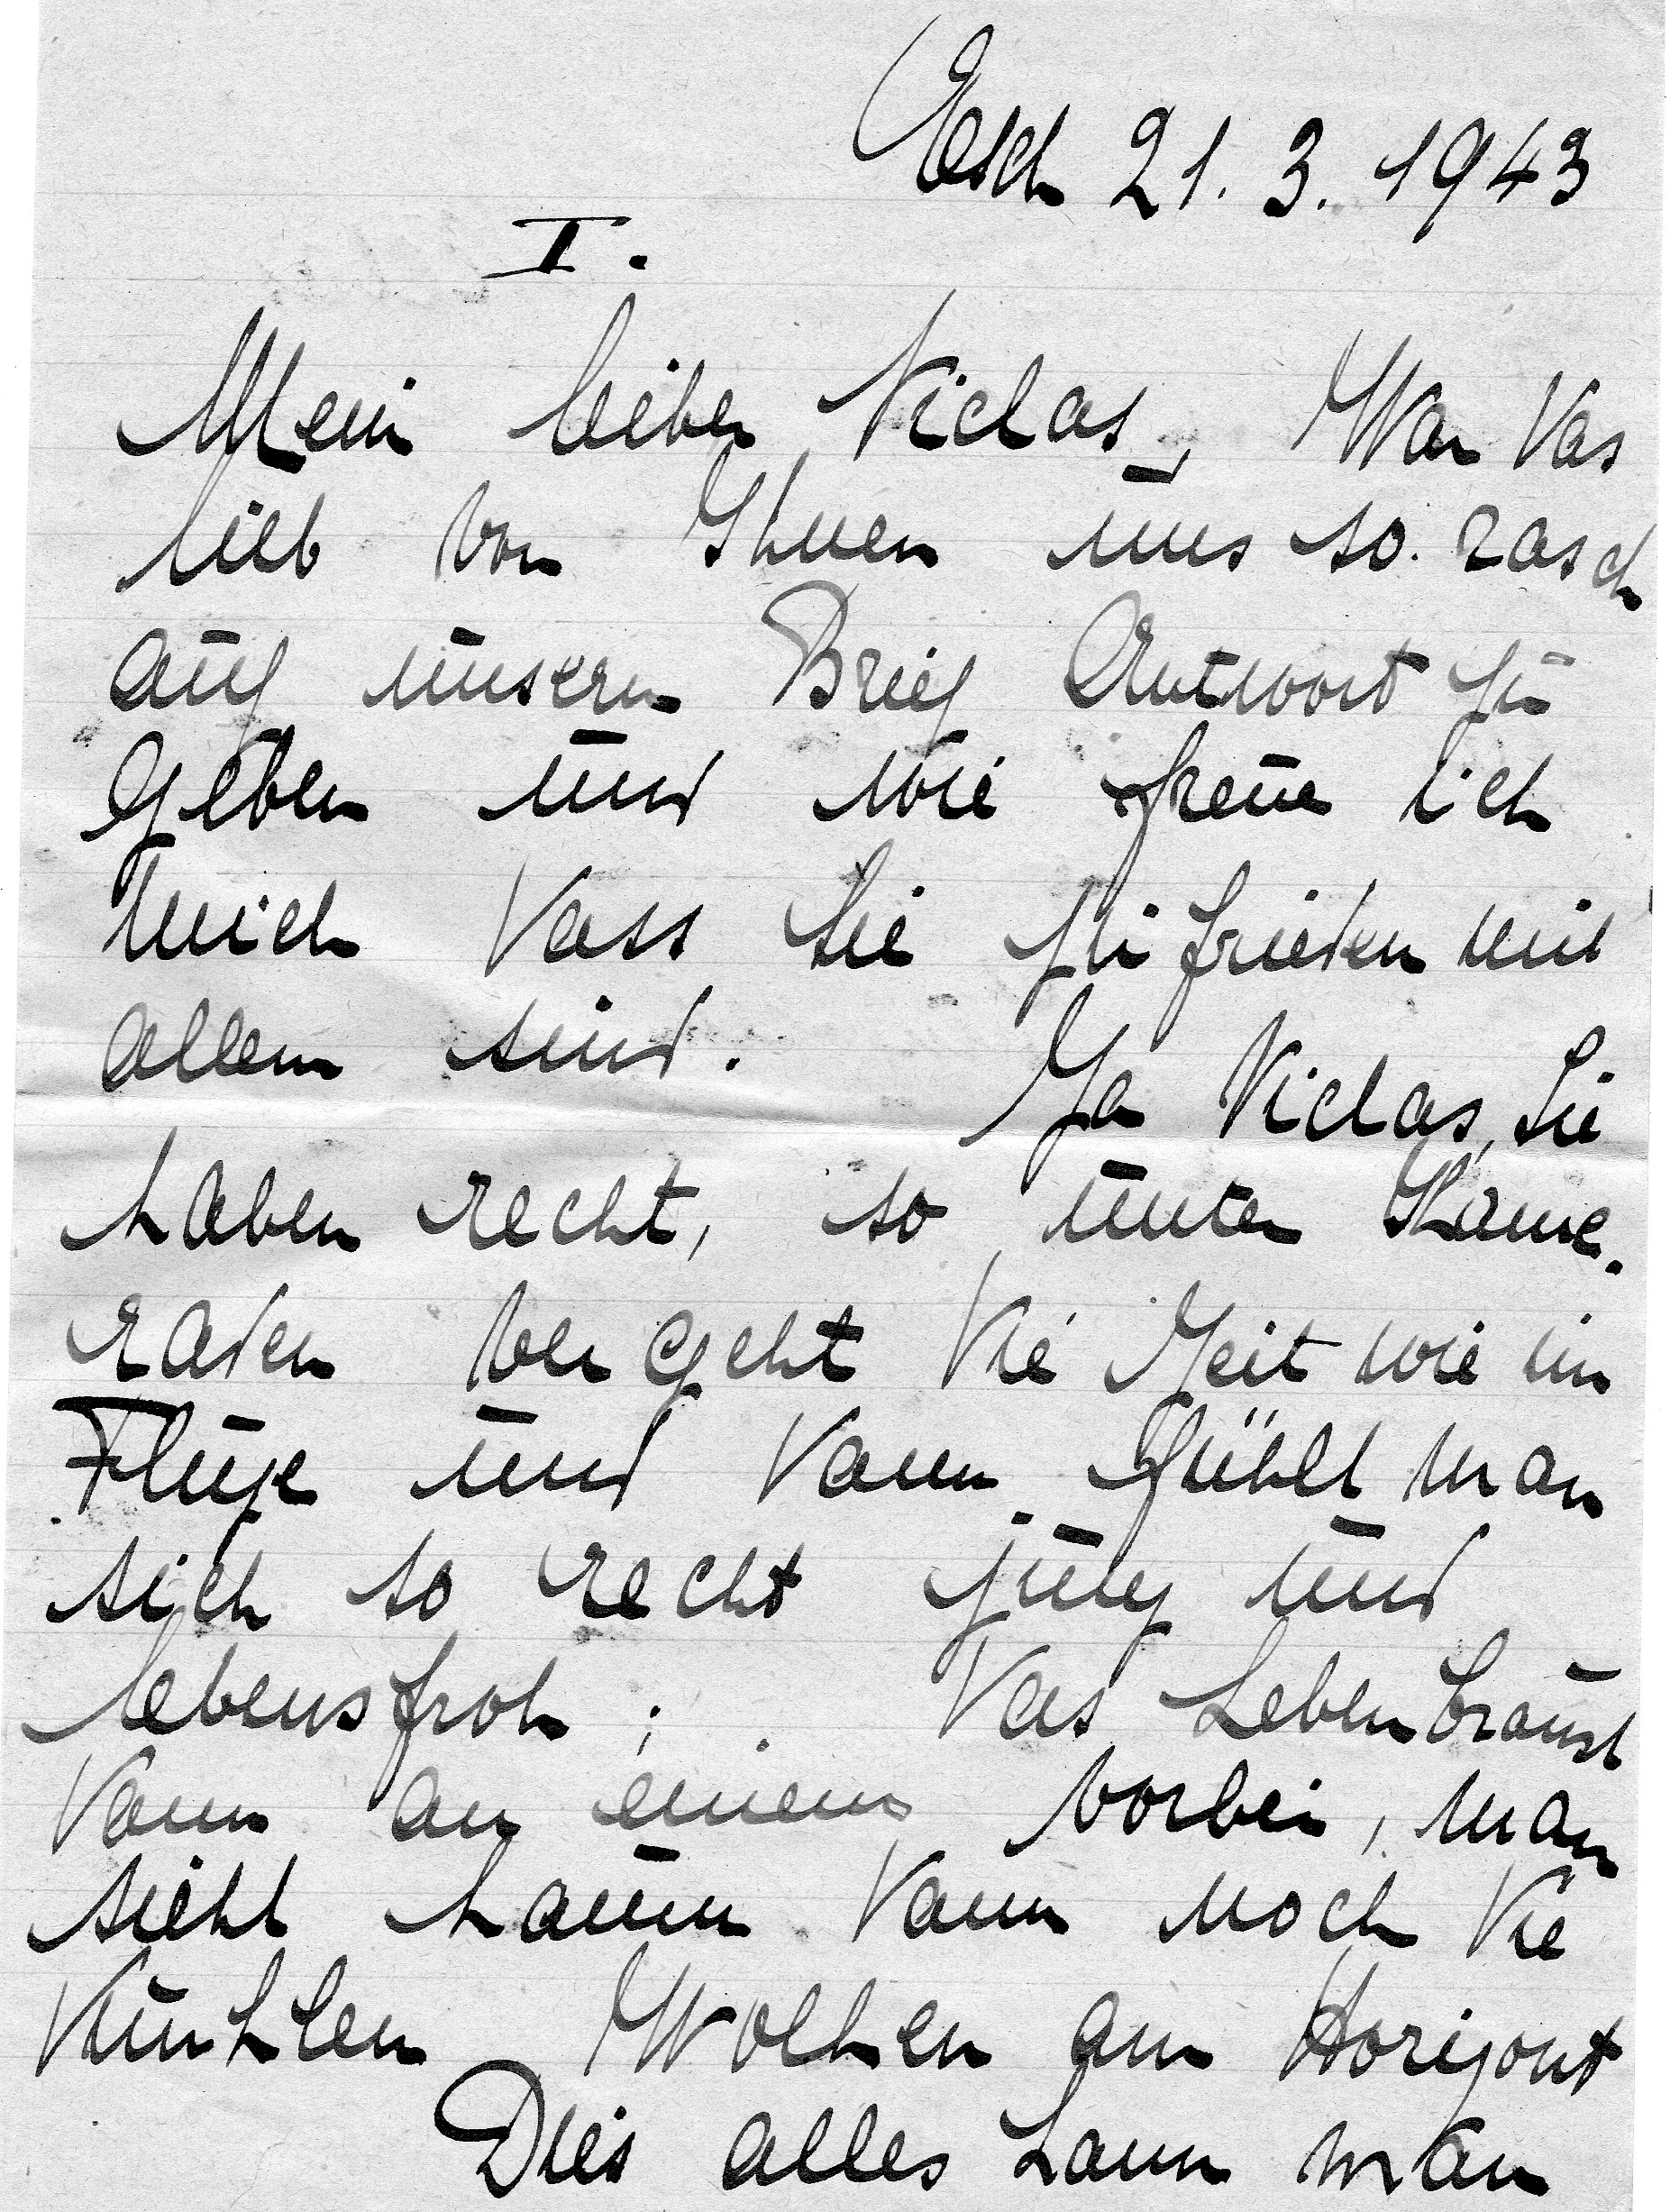 Esch 21. 3. 1943
I.
Mein lieber Niclas, War das
lieb von Ihnen uns so rasch
auf unsern Brief Antwort zu
geben und wie freue ich
mich dass Sie zufrieden mit
allem sind. Ja Niclas, Sie
haben recht, so unter Kame-
raden vergeht die Zeit wie im
Fluge und dann fühlt man
sich so recht jung und
lebensfroh; das Leben braust
dann an einem vorbei, man
sieht kaum dann noch die
dunklen Wolken am Horizont
Dies alles kann man